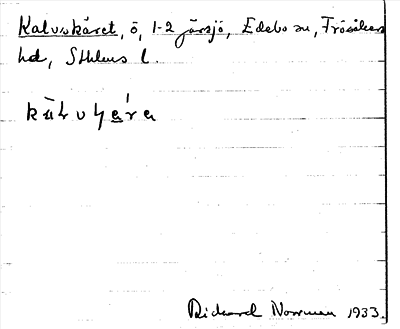 Kalvskäret, ö, 1-2 Järsjö, Edebo sn, Frösåkers
hd, Sthlms l.
Rickard Norrman 1933.